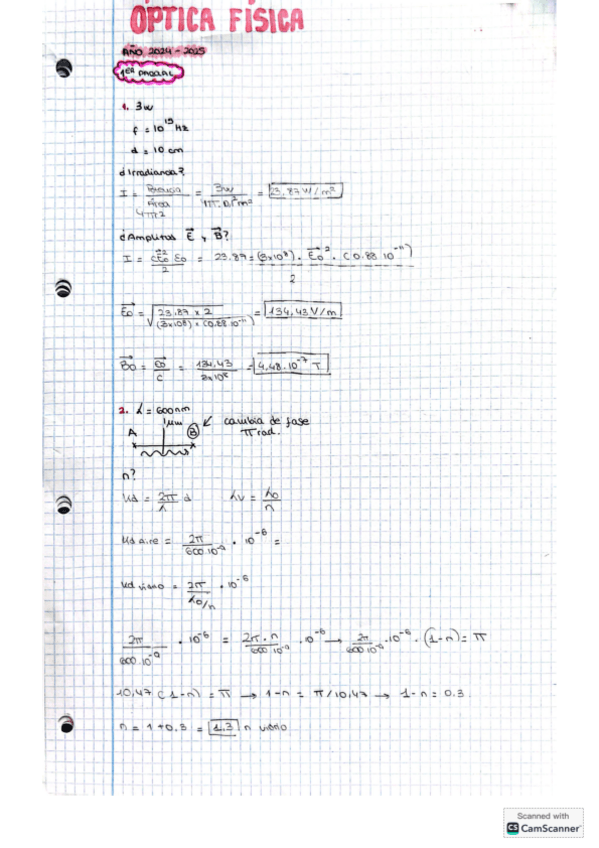 ÓPTICA FÍSICA
AÑO 2024-2025
1ER PARCIAL
1. 3w
f = 10^15 Hz
d = 10 cm
¿Irradiancia?
I = Potencia / Área = 3w / 4π·0.1² m² = 23.87 W/m²
4πR2
¿Amplitud E⃗ y B⃗?
I = cE⃗o² εo / 2 = 23.87 = (3x10⁸) · E⃗o² · (0.88 10^-11) / 2
E⃗o = √(23.87 x 2 / (3x10⁸) x (0.88 10^-11)) = 134,43 V/m
B⃗o = Eo / c = 134,43 / 3x10⁸ = 4,48·10^-7 T
2. λ = 600nm
1μm
A B ↙ cambia de fase
π rad.
n?
Kd = 2π/λ d λv = λo/n
Kd aire = 2π / 600·10^-9 · 10^-6 =
Kd vidrio = 2π / λo/n · 10^-6
2π / 600·10^-9 · 10^-6 = 2π·n / 600·10^-9 · 10^-6 → 2π / 600·10^-9 · 10^-6 · (1-n) = π
10,47 (1-n) = π → 1-n = π/10,47 → 1-n = 0.3.
n = 1+0.3 = 1,3 n vidrio
Scanned with
CS CamScanner